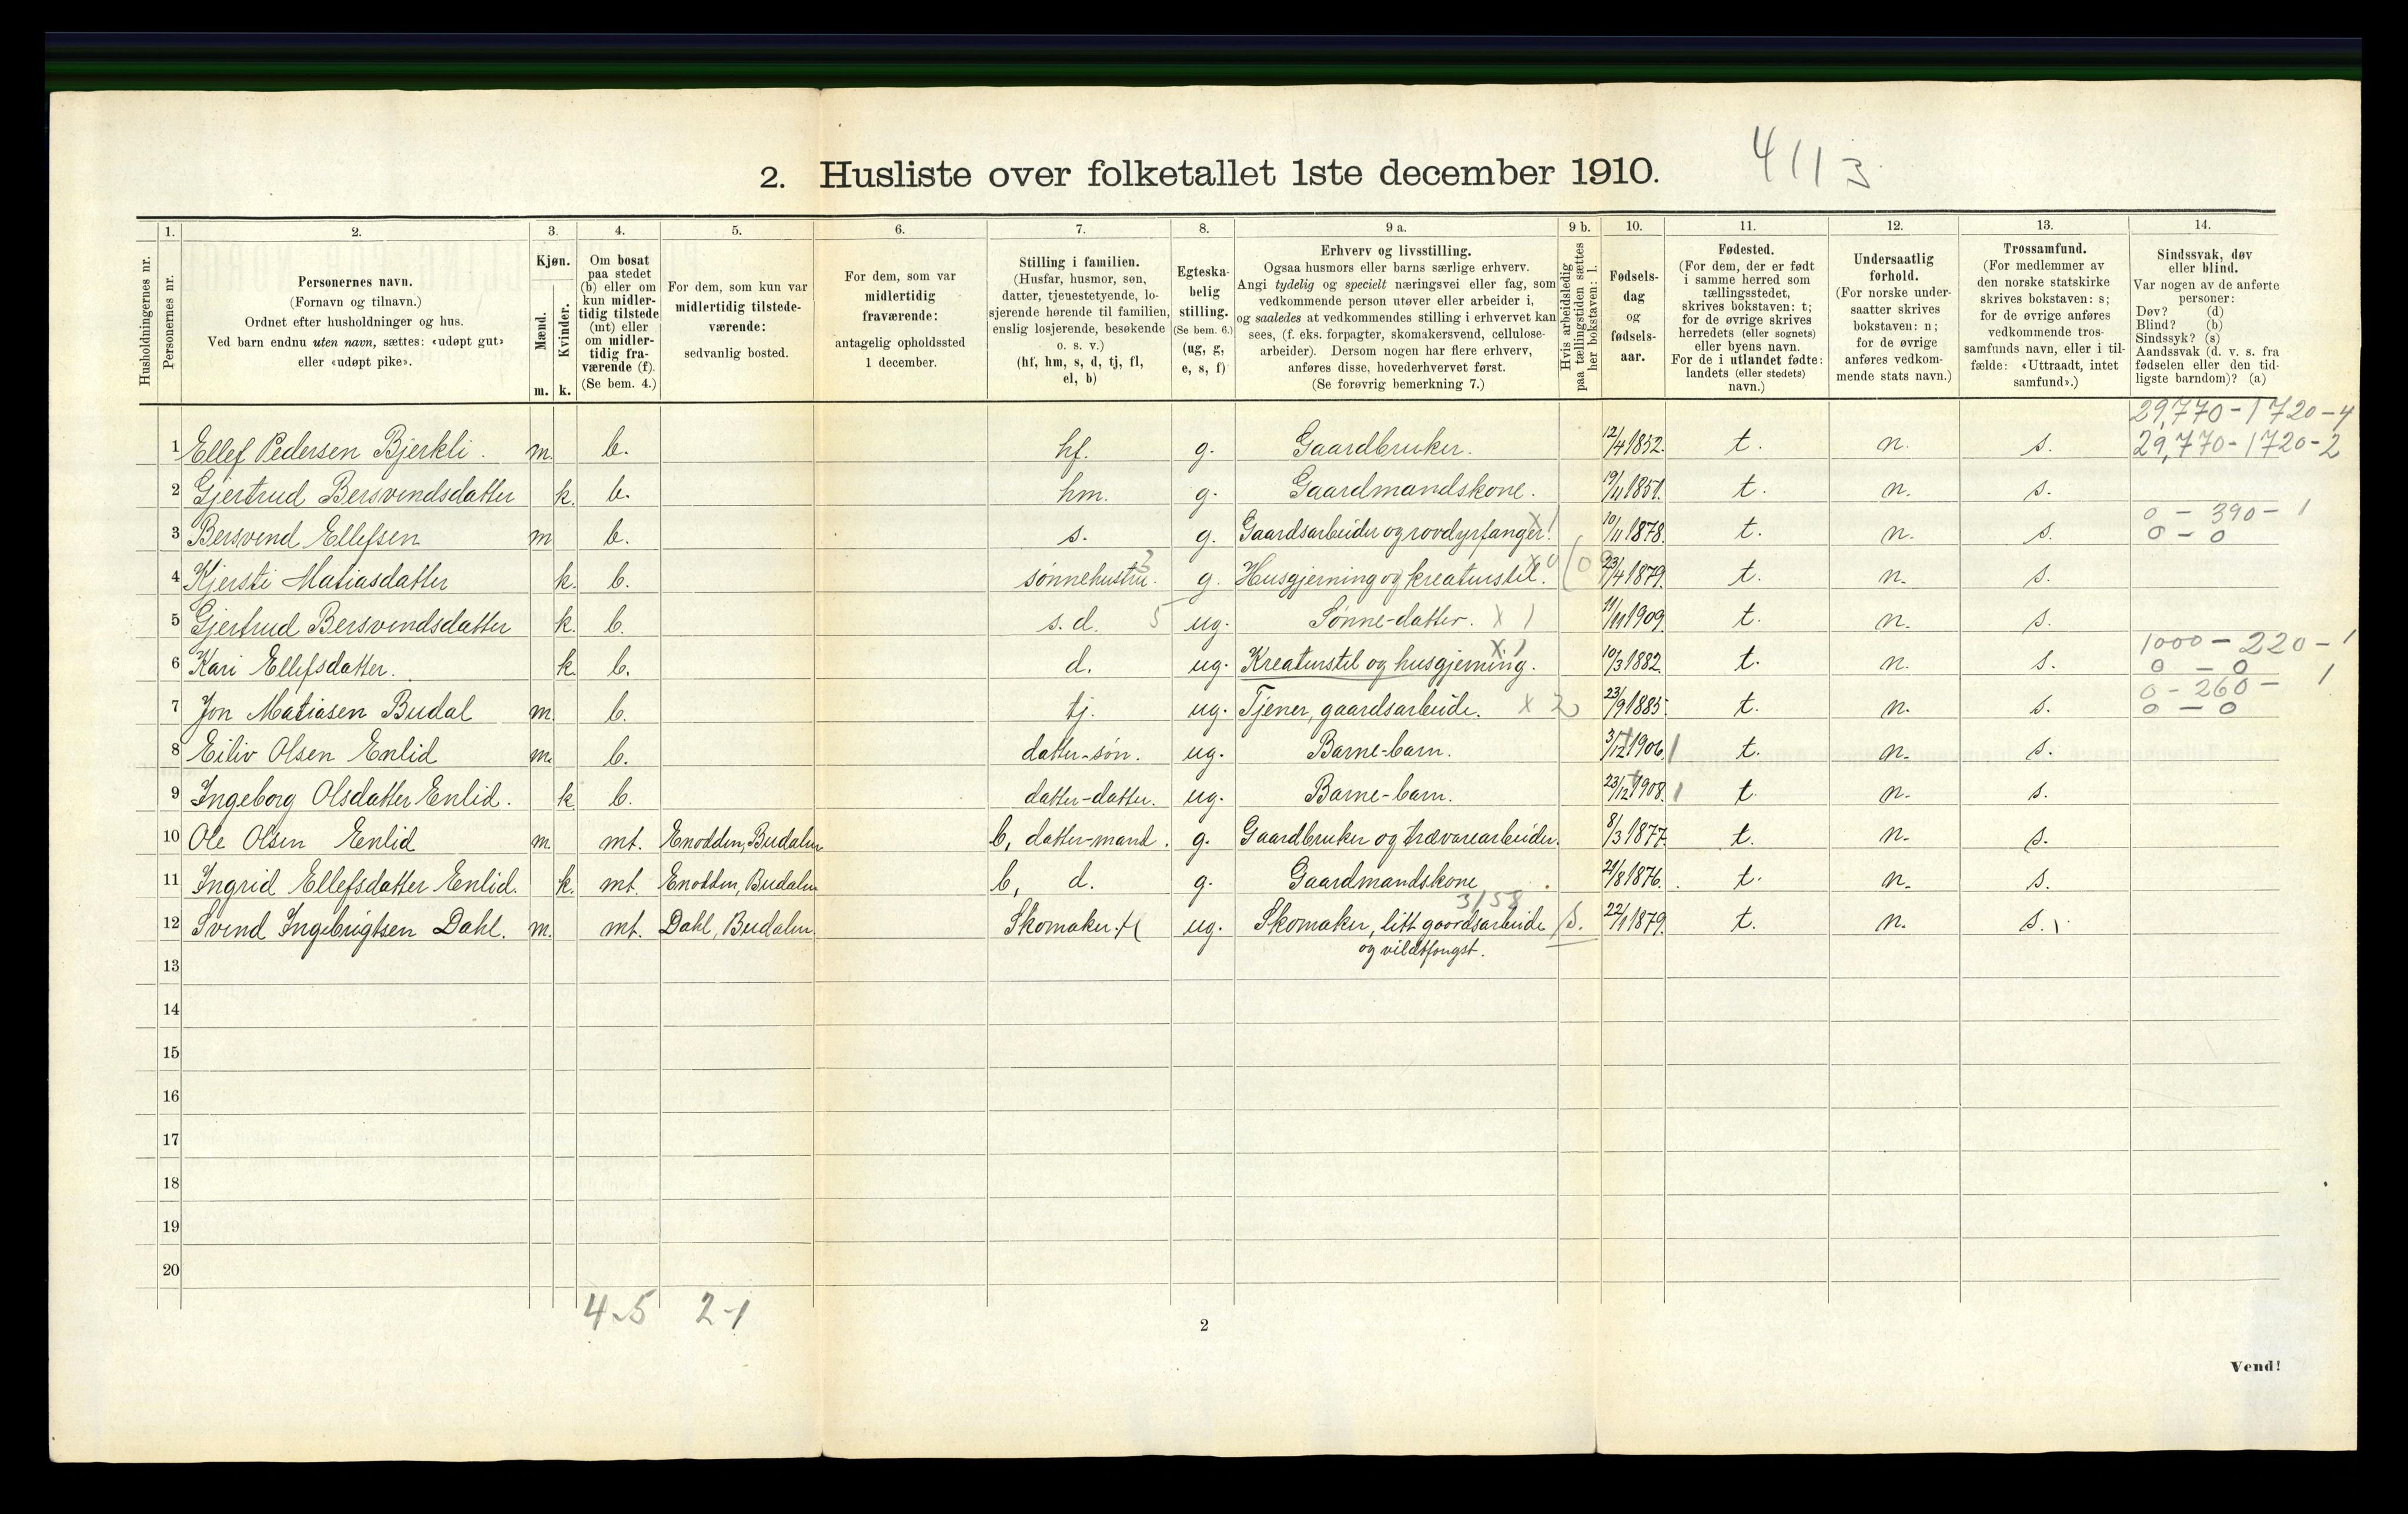 2. Husliste over folketallet 1ste december 1910. 4113
Husholdningernes nr.
1. Personernes nr.
2. Personernes navn. (Fornavn og tilnavn.) Ordnet efter husholdninger og hus. Ved barn endnu uten navn, sættes: «udøpt gut» eller «udøpt pike».
3. Kjøn. Mænd. m. Kvinder. k.
4. Om bosat paa stedet (b) eller om kun midlertidig tilstede (mt) eller om midlertidig fraværende (f). (Se bem. 4.)
5. For dem, som kun var midlertidig tilstedeværende: sedvanlig bosted.
6. For dem, som var midlertidig fraværende: antagelig opholdssted 1 december.
7. Stilling i familien. (Husfar, husmor, søn, datter, tjenestetyende, losjerende hørende til familien, enslig losjerende, besøkende o. s. v.) (hf, hm, s, d, tj, fl, el, b)
8. Egteskabelig stilling. (Se bem. 6.) (ug, g, e, s, f)
9 a. Erhverv og livsstilling. Ogsaa husmors eller barns særlige erhverv. Angi tydelig og specielt næringsvei eller fag, som vedkommende person utøver eller arbeider i, og saaledes at vedkommendes stilling i erhvervet kan sees, (f. eks. forpagter, skomakersvend, cellulosearbeider). Dersom nogen har flere erhverv, anføres disse, hovederhvervet først. (Se forøvrig bemerkning 7.)
9 b. Hvis arbeidsledig paa tællingstiden sættes her bokstaven: l.
10. Fødselsdag og fødselsaar.
11. Fødested. (For dem, der er født i samme herred som tællingsstedet, skrives bokstaven: t; for de øvrige skrives herredets (eller sognets) eller byens navn. For de i utlandet fødte: landets (eller stedets) navn.)
12. Undersaatlig forhold. (For norske undersaatter skrives bokstaven: n; for de øvrige anføres vedkommende stats navn.)
13. Trossamfund. (For medlemmer av den norske statskirke skrives bokstaven: s; for de øvrige anføres vedkommende trossamfunds navn, eller i tilfælde: «Uttraadt, intet samfund».)
14. Sindssvak, døv eller blind. Var nogen av de anførte personer: Døv? (d) Blind? (b) Sindssyk? (s) Aandssvak (d. v. s. fra fødselen eller den tidligste barndom)? (a)
29,770-1720-4
1 Ellef Pedersen Bjerkli. m. b. hf. g. Gaardbruker. 12/4 1852. t. n. s. 29,770-1720-2
2 Gjertrud Bersvendsdatter k. b. hm. g. Gaardmandskone. 19/11 1851. t. n. s.
0 - 390 - 1
3 Bersvend Ellefsen m b. s. g. Gaardsarbeider og rovdyrfanger. x 1 10/11 1878. t. n. s. 0 - 0
4 Kjersti Matiasdatter k. b. sønnehustru. 3 g. Husgjerning og kreaturstel. x 0 23/4 1879. t. n. s.
5 Gjertrud Bersvendsdatter k. b. s. d. 5 ug. Sønne-datter. x 1 11/11 1909. t. n. s.
1000 - 220 - 1
6 Kari Ellefsdatter. k. b. d. ug. Kreaturstel og husgjerning. x 1 10/3 1882. t. n. s. 0 - 0
0 - 260 - 1
7 Jon Matiasen Budal m. b. tj. ug. Tjener, gaardsarbeide. x 2 23/9 1885. t. n. s. 0 - 0
8 Eiliv Olsen Enlid m. b. datter-søn. ug. Barne-barn. 3/12 1906. 1 t. n. s.
9 Ingeborg Olsdatter Enlid. k b. datter-datter. ug. Barne-barn. 23/12 1908. 1 t. n. s.
10 Ole Olsen Enlid m. mt. Enodden, Budalen b, datter-mand. g. Gaardbruker og trævarearbeider. 8/3 1877. t. n. s.
11 Ingrid Ellefsdatter Enlid. k. mt. Enodden, Budalen b, d. g. Gaardmandskone 21/8 1876. t. n. s.
3/58
12 Svend Ingebrigtsen Dahl. m. mt. Dahl, Budalen. Skomaker. ug. Skomaker, litt gaardsarbeide og vildtfangst. s. 22/1 1879. t. n. s.
13
14
15
16
17
18
19
20
4-5 2-1
2
Vend!